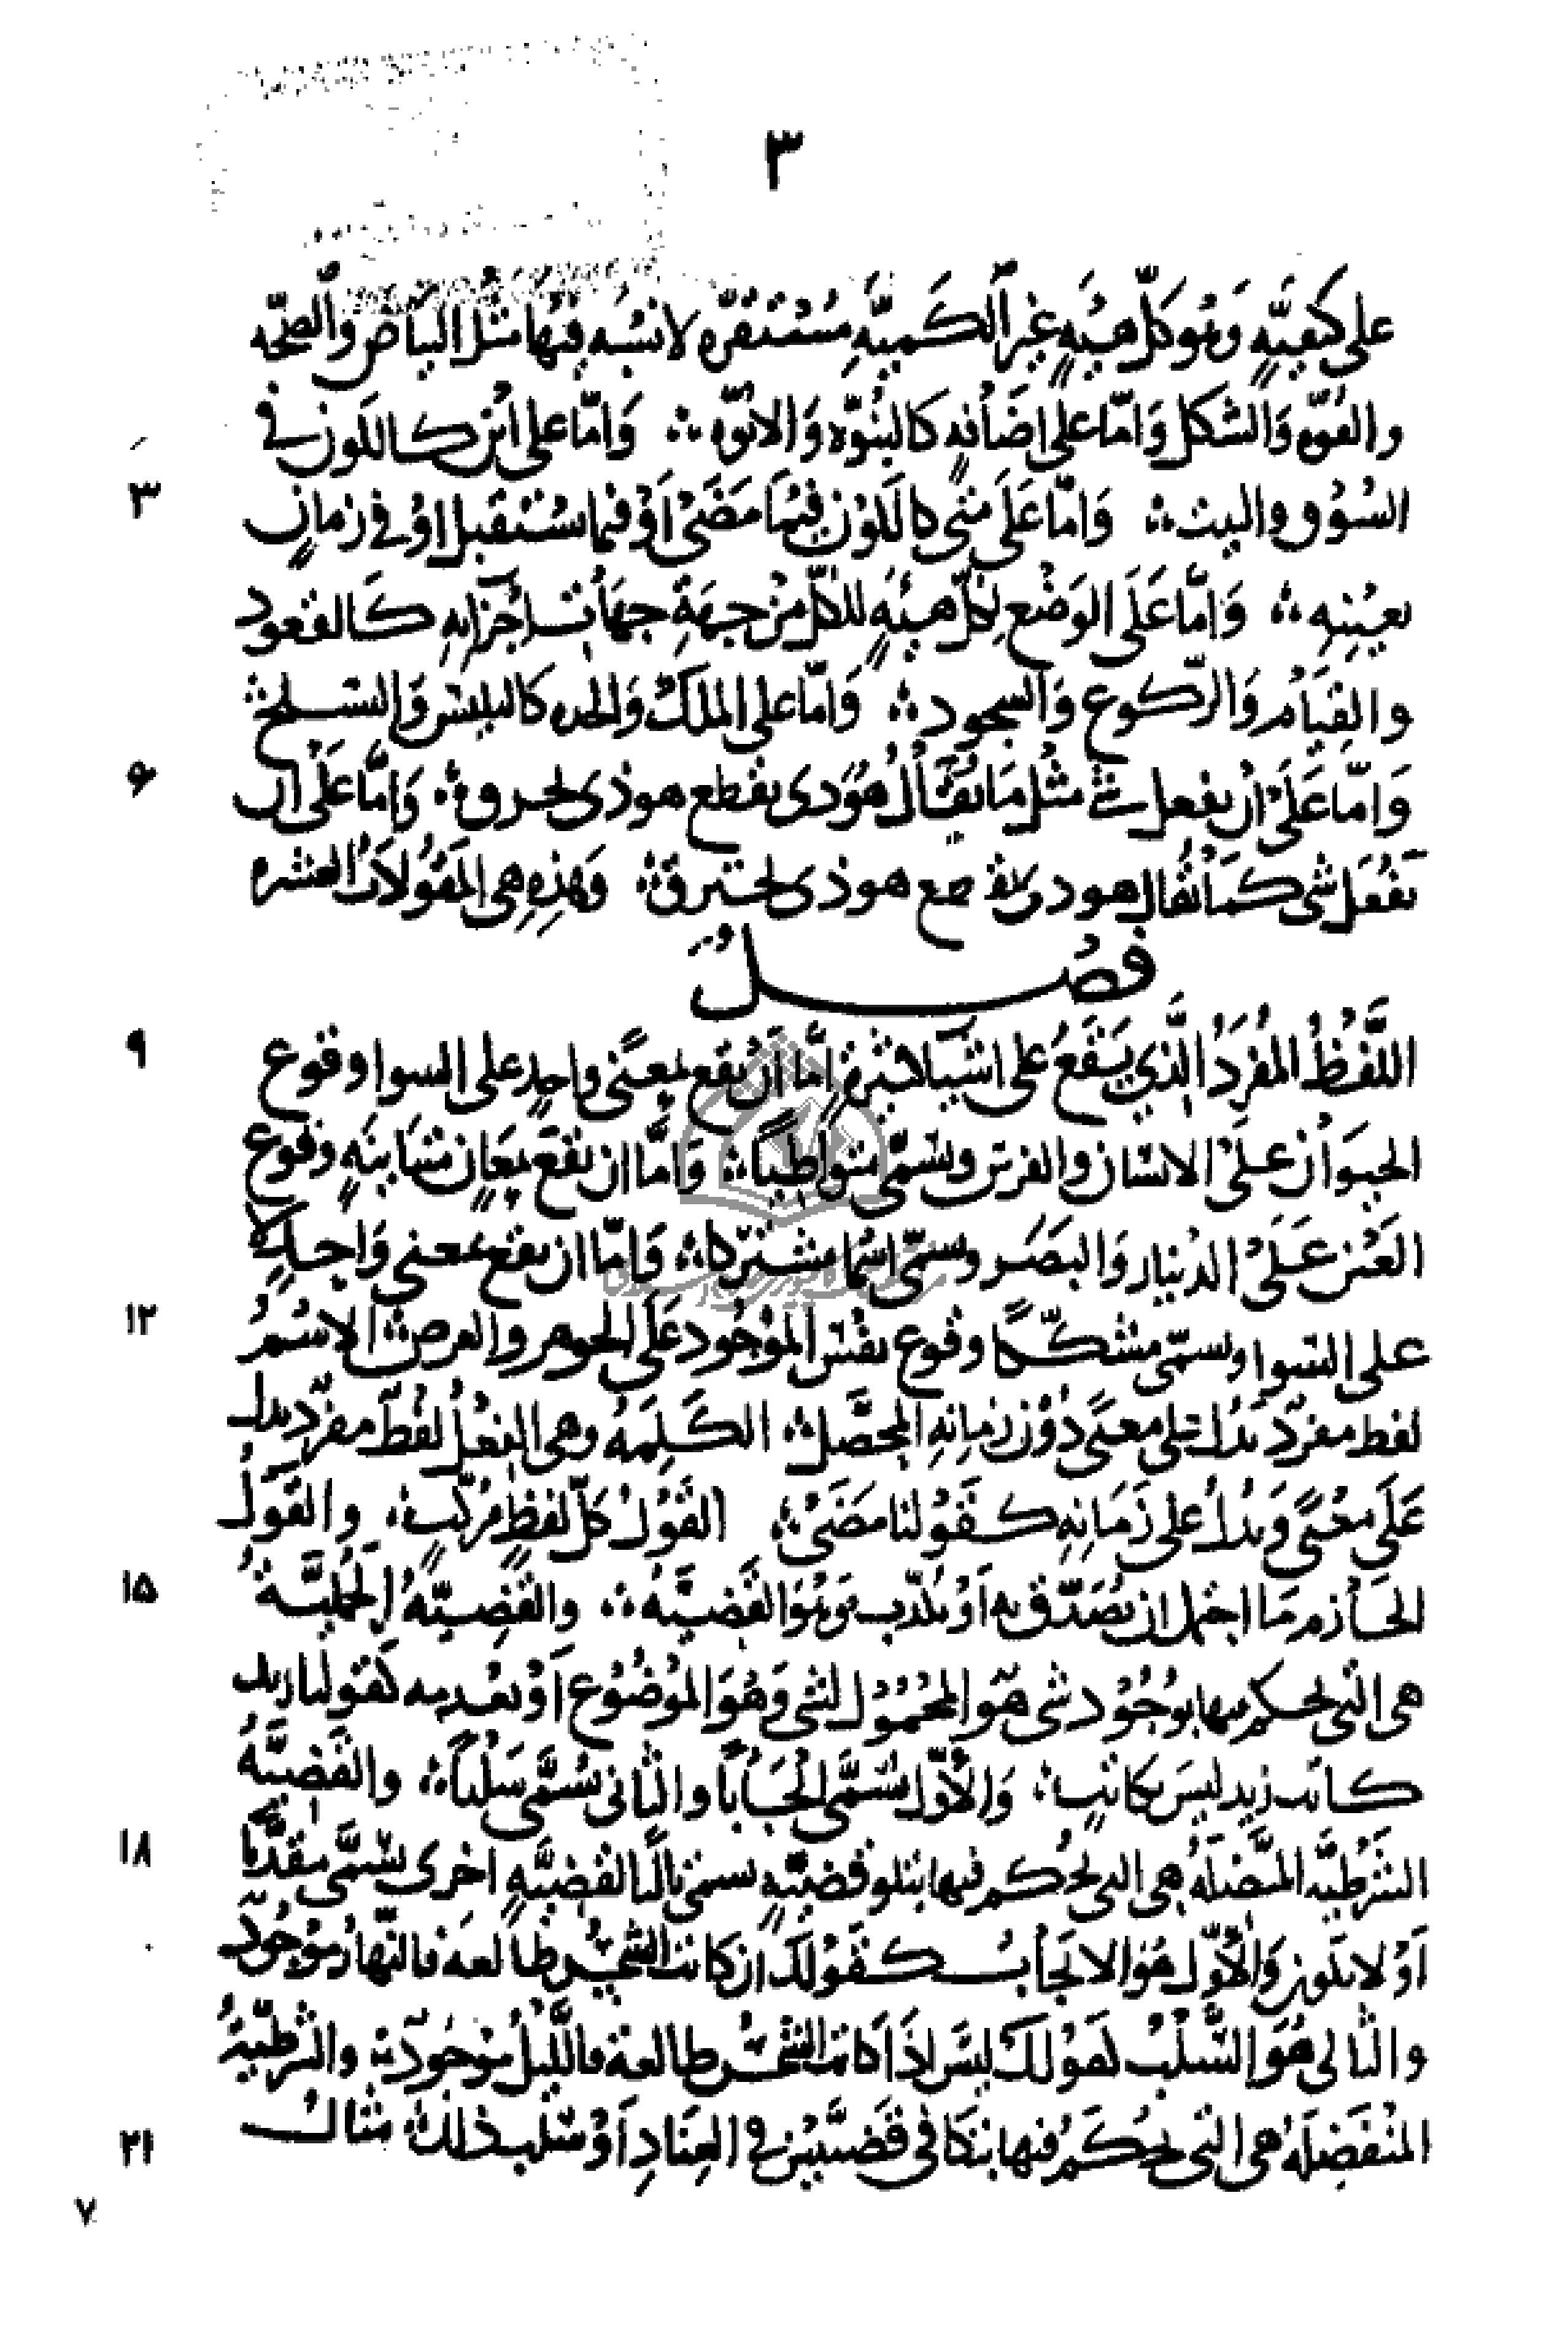 ٣
على كيفيّةٍ وَهُو كلّ هيئةٍ غير الكَميّةِ مُستقرّه لا نسبَه فيها مثل البيَاض والصحّه
والقوّه وَالشكل وَامّا على اضَافةٍ كالبنوّه وَالابوّه ؞ وَامّا على اين كالكون في
٣
السُوق والبيت ؞ وَامّا عَلَى متى كالكون فيمَا مَضَى اَوْ فيما يستقبل اوْ في زمانٍ
بعينِهِ ؞ وَامّا عَلَى الوَضْع لكلّ هيئةٍ للكلّ من جهَةِ جهَات اَجزايهِ كالقعود
والقِيَام وَالرّكوع وَالسجود ؞ وَامّا على الملك وَالجده كالتلبس وَالتسلح
۶
وَامّا عَلَى انْ يفعل شى مثْل مَا يقَالُ هُوَذى يقطع هوذى يحرق ؞ وَامّا عَلى ان
يَنفعَل شى كمَا يُقال هوذى ينقطع هوذى يحترق ؞ وَهَذِهِ هِى المَقُولاَتُ العشره
فصْلٌ
٩
اللَّفْظُ المُفرَدُ الَّذي يَقَعُ على اشيَا كثيرةٍ اِمَّا اَنْ يقع بمعنًى واحدٍ على السوا وقوع
الحيوَان عَلَى الانسَان والفرس ويسَمّى متواطِيًا ؞ وَامَّا ان يقَعَ بمعَانٍ متباينَهٍ وقوع
العَيْن عَلَى الدينار وَالبصَر ويسمّى اسْما مشتركا ؞ وَامّا ان يقع بمعنى وَاحدٍ لا
١٢
على السوا ويسمّى مشكّكًا وقوع نفس الموْجُود عَلَى الجوهر والعرض ؞ الاسْمُ
لفظ مفردٌ يدل على معنًى دُوْنَ زمانِهِ المحَصَّل ؞ الكَلِمَهُ وهى الفِعْلُ لفظٌ مفردٌ يدل
عَلَى معْنًى وَيدُلُ على زَمَانِهِ كَقَوْلنا مَضَىْ ؞ القَوْلُ كلّ لفظٍ مركّبٍ ؞ والقَوْلُ
١۵
الجَازم مَا احتمل ان يُصَدّق به اَوْ يكذّب وَهُوَ القَضيَّه ؞ والقضِيّهُ الحَمْليَّةُ
هى التى يحكم بها بوُجُوْد شى هوَ المحْمُوْل لشى وَهُوَ الموْضُوْع اَوْ بعْدمه كقولنا زيد
كاتب زيد ليسَ بكاتبٍ ؞ وَالاَوّل يُسَمَّى ايجَابًا والثانى يُسَمَّى سَلْبًا ؞ والقضيَّهُ
١٨
الشرْطيَّه المتَّصلَهُ هى التى يُحْكم فيها بتلو قضيّهٍ تسمى تاليًا لقضيَّهٍ اخرى تسَمَّى مقدَّمًا
اَوْ لا يكون وَالاوّل هُوَ الايجَابُ كقَوْلك ان كانت الشمس طالعه فالنّهار مَوْجُودٌ
والثانى هُوَ السَّلْبُ كقوْلك ليسَ اذَا كانت الشمْسُ طالعة فالَّليلُ موْجُودٌ ؞ والشرطيّهُ
٢١
المنْفَصلَهُ هى التى يحْكَمُ فيها بتكافى قضيّتين فى العِنادِ اَوْ سَلب ذلك مثالُ
٧